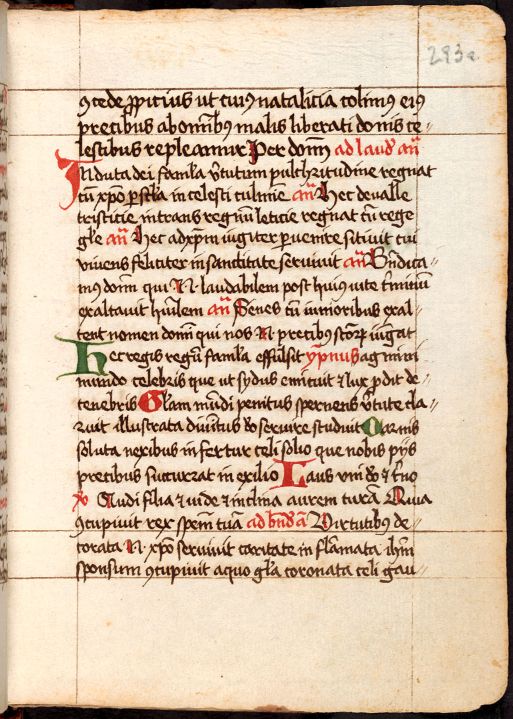 293a
ꝯcede ꝓpicius ut cuiꝰ natalicia colimꝰ eiꝰ
precibus ab omnibꝰ malis liberati donis ce⸗
lestibus repleamur Per dom̄ ad laud̄ an̄
Induta dei faml̄a v̓tutum pulchritudine regnat
cū xp̄o ꝑ sc̄la in celesti culmine an̄ Hec de valle
tristicie intrans regnū leticie regnat cū rege
gl̄e an̄ Hec ad xp̄m iugiter ꝑuenire sitivit cui
vivens feliciter in sanctitate servivit an̄ Bn̄dica⸗
mꝰ dom̄ qui N laudabilem post huiꝰ vite t̓minū
exaltavit hūilem an̄ Senes cū iunioribus exal⸗
tent nomen dom̄ qui nos N precibꝰ sc̄oꝝ iūgat
Hec regis regū faml̄a effulsit ypnus ag mini
mundo celebris que ut sydus emicuit ⁊ lux ꝓdit de
tenebris Gl̄am mūdi penitus spernens v̓tute cla⸗
ruit illustrata divinitꝰ deo servire studuit Carnis
soluta nexibus infertur celi solio que nobis pijs
precibus succurrat in exilio Laus uni deo ⁊ trino
v̓ Audi filia ⁊ vide ⁊ inclina aurem tuā Quia
ꝯcupivit rex spem̄ tuā ad bn̄d̄ a̅ Virtutibꝰ de⸗
corata N xp̄o servivit caritate inflāmata ih̄m
sponsum ꝯcupivit a quo gl̄a coronata celi gau⸗